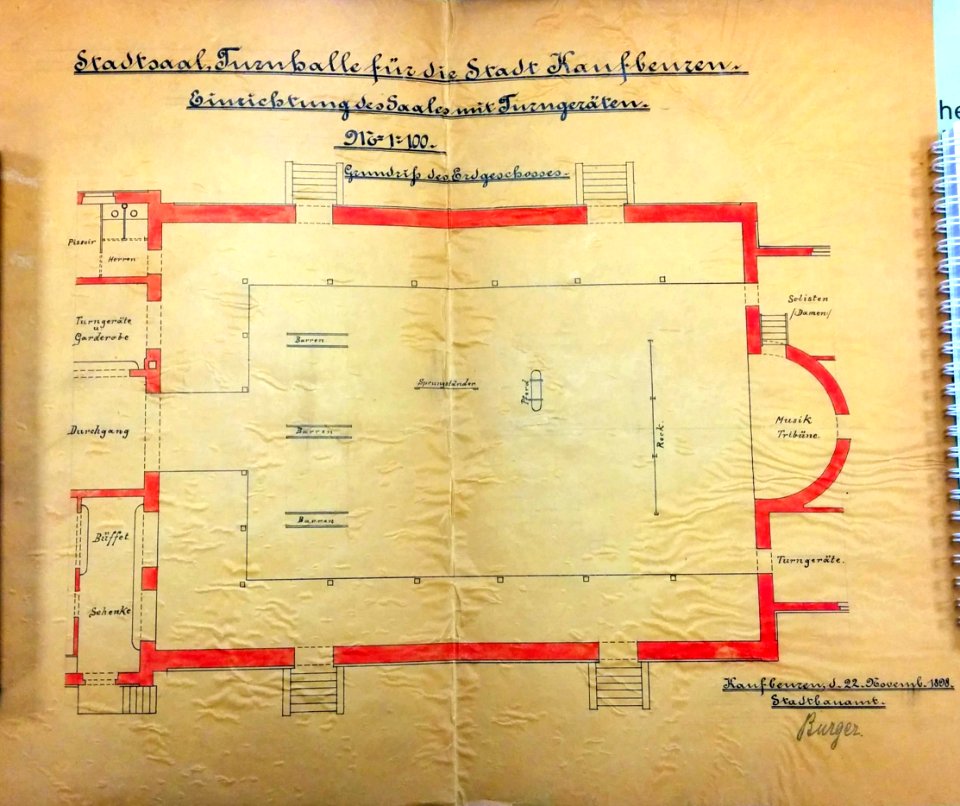 Stadtsaal, Turnhalle für die Stadt Kaufbeuren.
Einrichtung des Saales mit Turngeräten.
M= 1=100.
Grundriß des Erdgeschosses.
he
Pissoir
Herren
Solisten
/Damen/
Turngeräte
u
Garderobe
Barren
Sprungständer
Pferd
Reck.
Durchgang
Barren
Musik
Tribüne.
Barren
Büffet
Turngeräte.
Schenke
Kaufbeuren, d. 22. Novemb. 1898.
Stadtbauamt.
Burger.